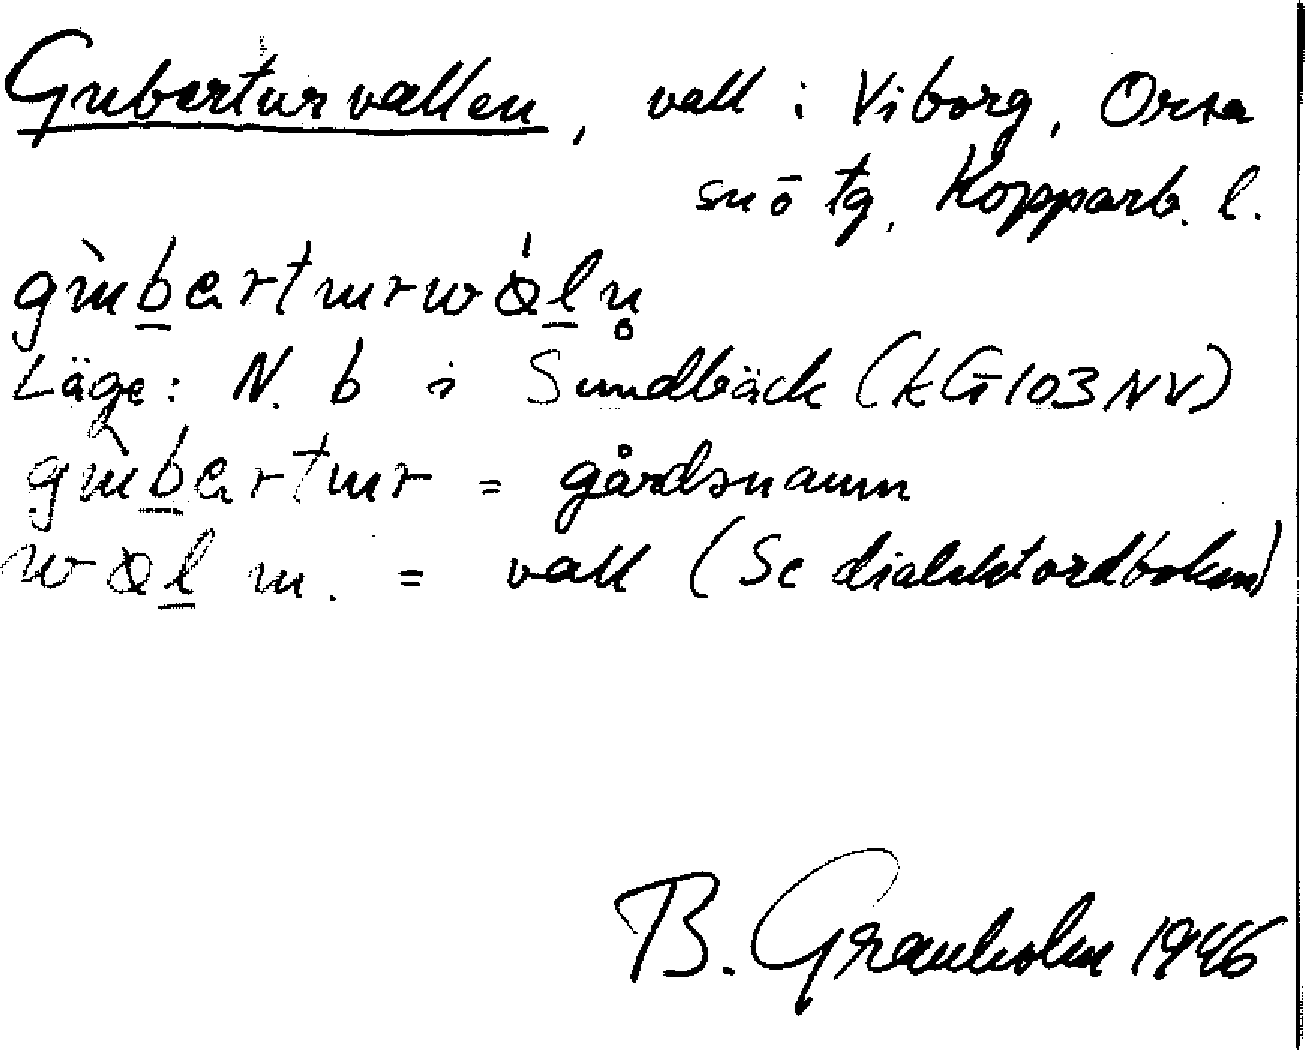 Guberturvallen, vall i Viborg, Orsa
snö tg, Kopparb. l.
gùberturwáln̥
Läge: N. b i Sundbäck (kG103NV)
gùbertur = gårdsnamn
wal m. = vall (Se dialektordboken)
B. Granholm 1946